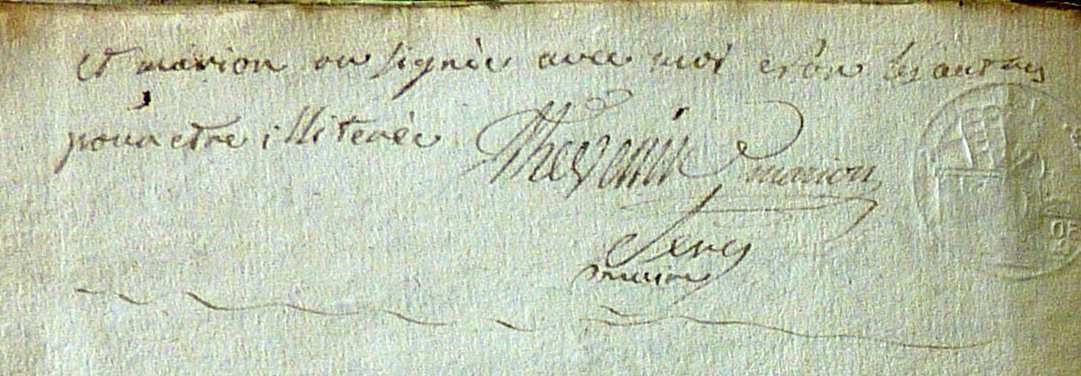 et marion on signée avec moi et on les autres
pour etre illiterée Thevenin marion
Seres
maire